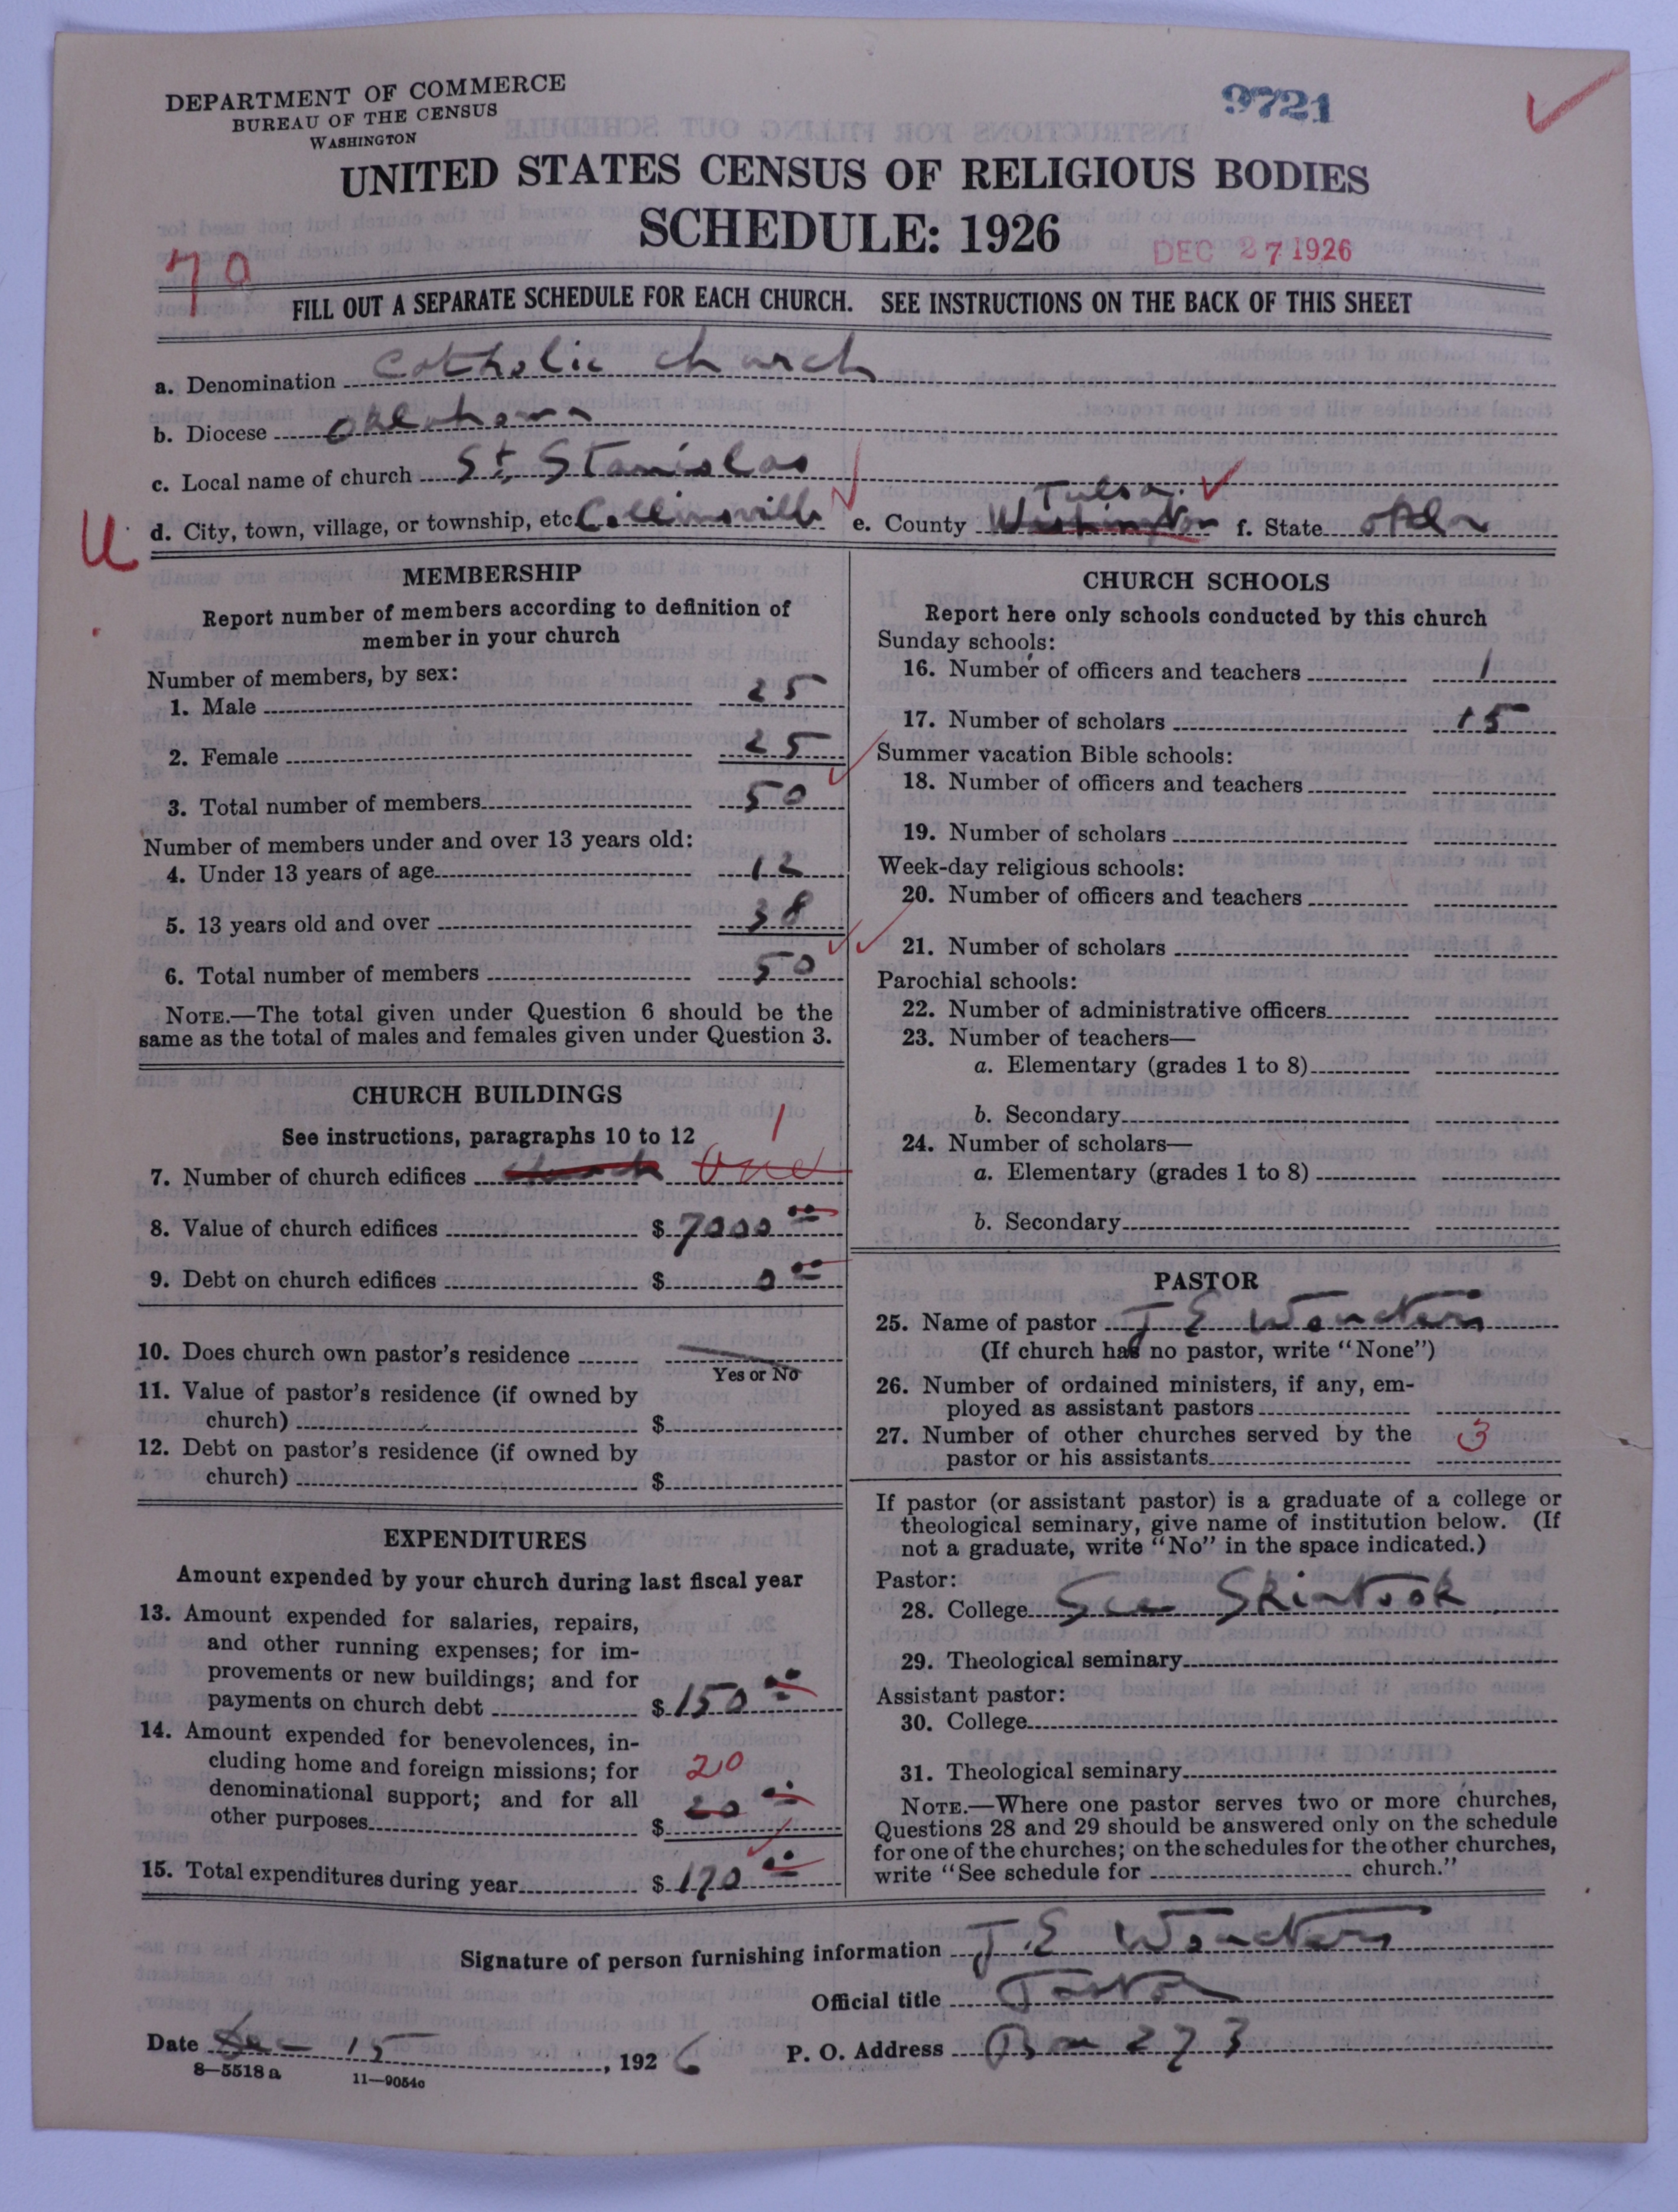 DEPARTMENT OF COMMERCE
BUREAU OF THE CENSUS
WASHINGTON
9721
UNITED STATES CENSUS OF RELIGIOUS BODIES
SCHEDULE: 1926
DEC 27 1926
70
FILL OUT A SEPARATE SCHEDULE FOR EACH CHURCH. SEE INSTRUCTIONS ON THE BACK OF THIS SHEET
a. Denomination Catholic church
b. Diocese Oklahoma
c. Local name of church St. Stanislas
U
d. City, town, village, or township, etc. Collinsville e. County Washington Tulsa f. State Okla
MEMBERSHIP
Report number of members according to definition of
member in your church
Number of members, by sex:
1. Male 25
2. Female 25
3. Total number of members 50
Number of members under and over 13 years old:
4. Under 13 years of age 12
5. 13 years old and over 38
6. Total number of members 50
NOTE.—The total given under Question 6 should be the
same as the total of males and females given under Question 3.
CHURCH BUILDINGS
See instructions, paragraphs 10 to 12
1
7. Number of church edifices church One
8. Value of church edifices $ 7000 00
9. Debt on church edifices $ 0 00
10. Does church own pastor's residence
Yes or No
11. Value of pastor's residence (if owned by
church) $
12. Debt on pastor's residence (if owned by
church) $
EXPENDITURES
Amount expended by your church during last fiscal year
13. Amount expended for salaries, repairs,
and other running expenses; for im-
provements or new buildings; and for
payments on church debt $ 150 00
14. Amount expended for benevolences, in-
cluding home and foreign missions; for
denominational support; and for all
other purposes $ 20 00
20
15. Total expenditures during year $ 170 00
CHURCH SCHOOLS
Report here only schools conducted by this church
Sunday schools:
16. Number of officers and teachers 1
17. Number of scholars 15
Summer vacation Bible schools:
18. Number of officers and teachers
19. Number of scholars
Week-day religious schools:
20. Number of officers and teachers
21. Number of scholars
Parochial schools:
22. Number of administrative officers
23. Number of teachers—
a. Elementary (grades 1 to 8)
b. Secondary
24. Number of scholars—
a. Elementary (grades 1 to 8)
b. Secondary
PASTOR
25. Name of pastor J E
(If church has no pastor, write "None")
26. Number of ordained ministers, if any, em-
ployed as assistant pastors
27. Number of other churches served by the
pastor or his assistants 3
If pastor (or assistant pastor) is a graduate of a college or
theological seminary, give name of institution below. (If
not a graduate, write "No" in the space indicated.)
Pastor:
28. College See Skiatook
29. Theological seminary
Assistant pastor:
30. College
31. Theological seminary
NOTE.—Where one pastor serves two or more churches,
Questions 28 and 29 should be answered only on the schedule
for one of the churches; on the schedules for the other churches,
write "See schedule for church."
Signature of person furnishing information J. E
Official title Pastor
Date Dec 15, 1926
P. O. Address Box 273
8—5518 a 11—9054c